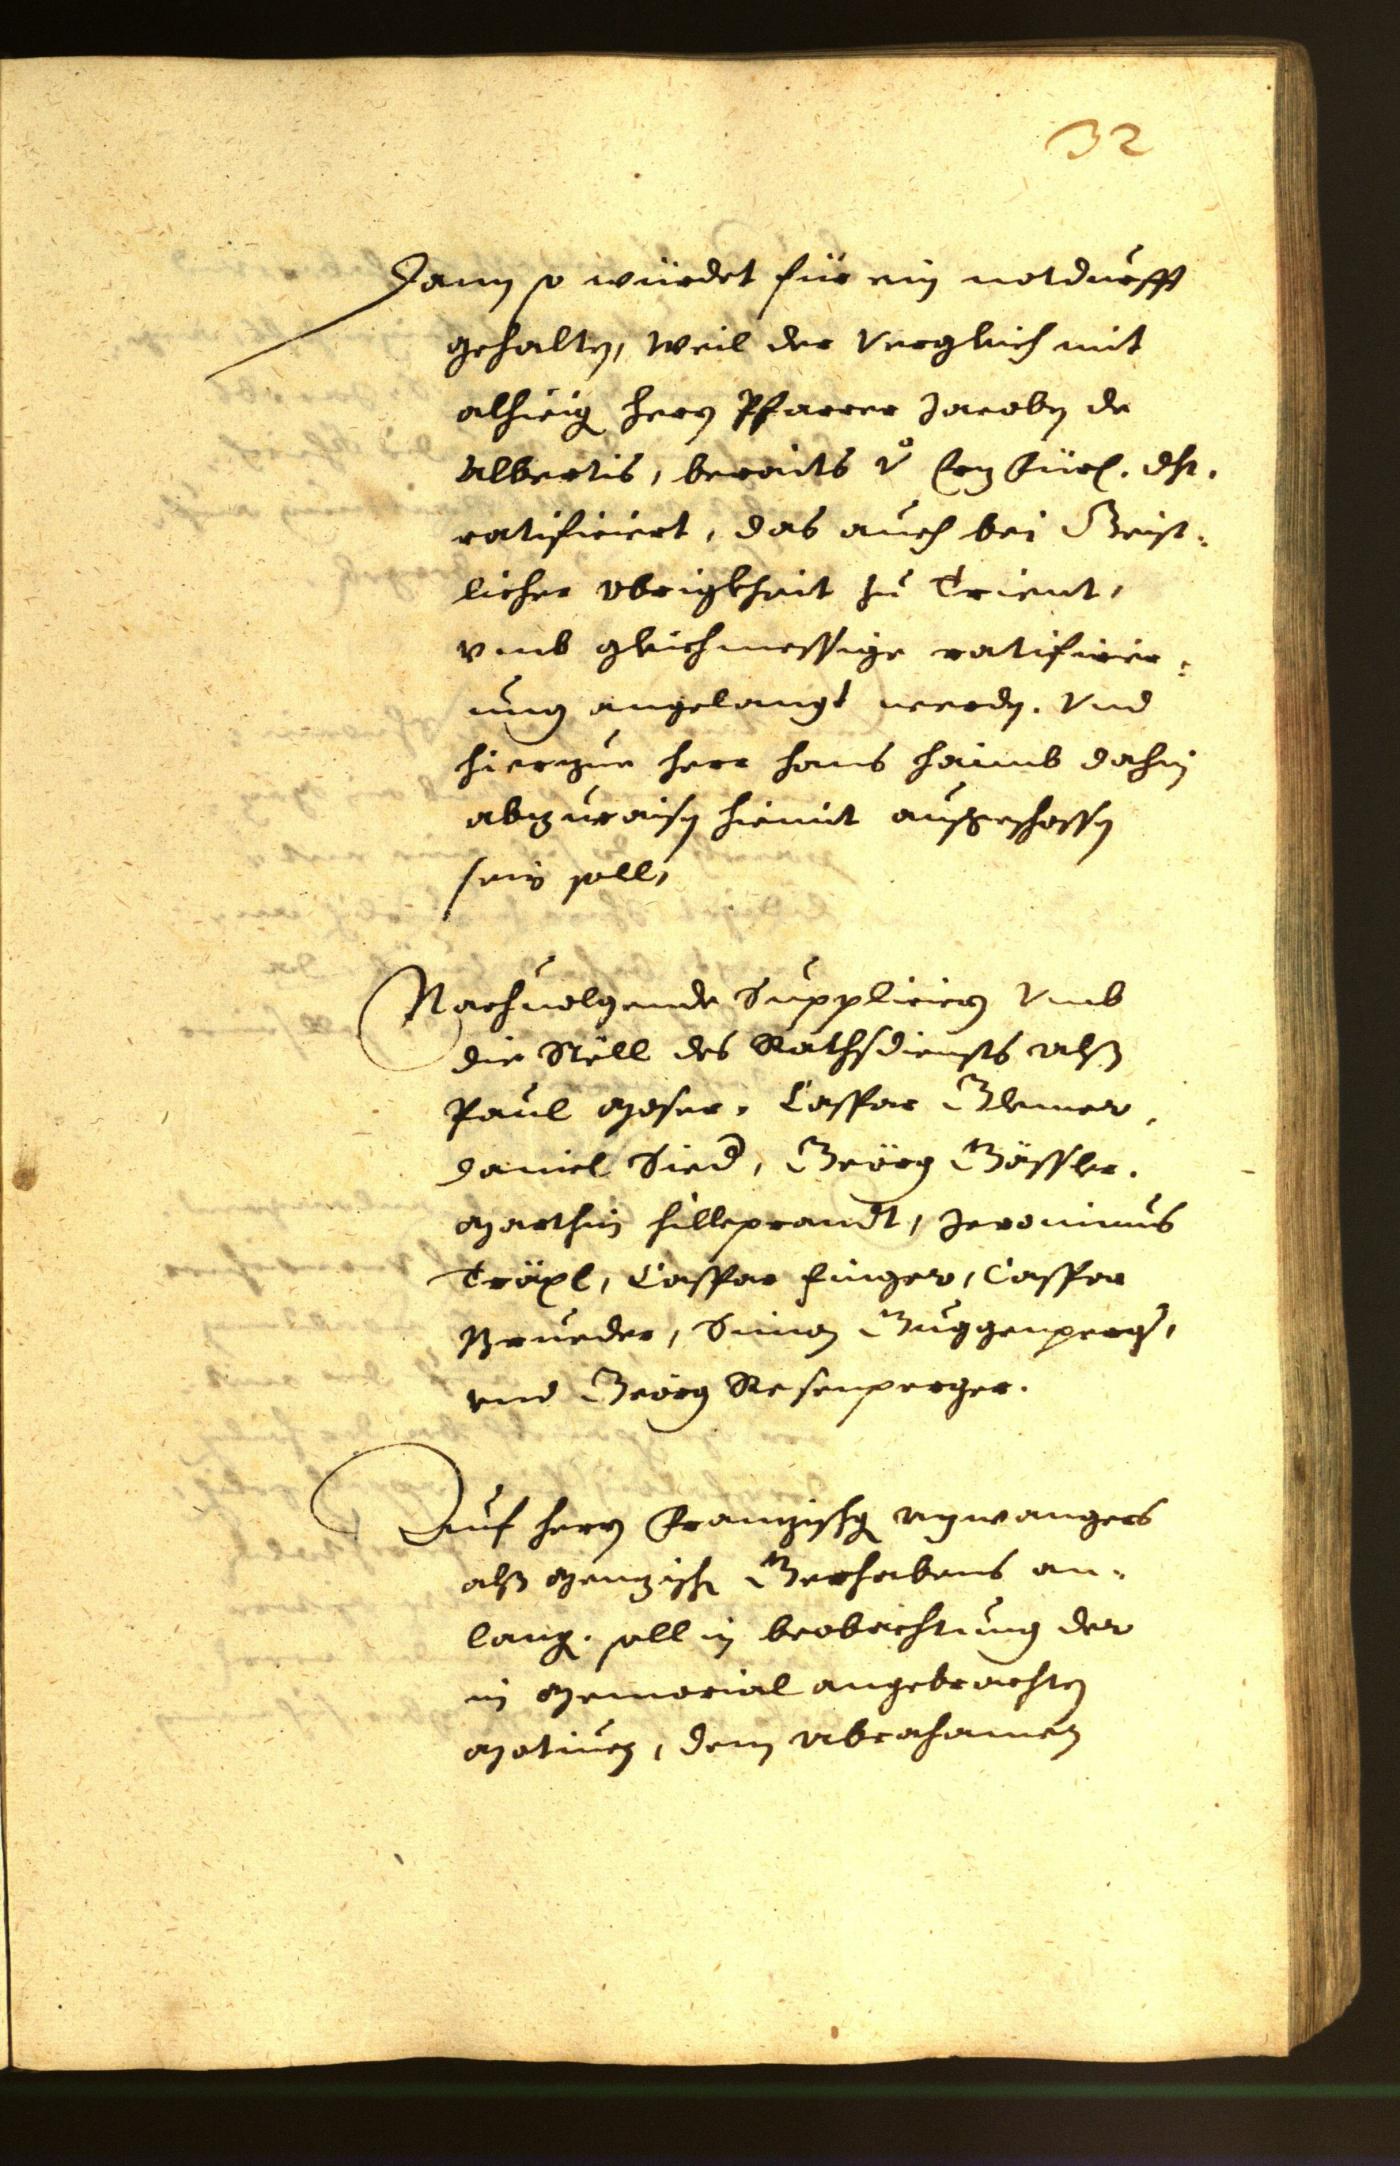 32
Dann so würdet für ein notdurfft
gehalten, Weil der Vergleich mit
alhieig herrn Pfarrer Jacobn de
Albertis, beraits von hrn Fürl. dht.
ratificiert, das auch bei Geist-
licher Obrigkhait zu Trient,
vmb gleichmessige ratificier-
ung angelangt werdn. Vnd
hierzue herr hans haimb dahin
abzuraisn hiemit ausgeschossn
sein soll,
Nachuolgende Suppliciern Vmb
die Stell des Rathsdiensts alß
Paul Moser, Casspar
Daniel Sied, Geörg Gässler.
Marthin hilleprandt, Jeronimus
Träxl, Casspar finger, Casspar
Prueder, Simon Guggenperger,
vnd Geörg Resenperger.
Auf herrn Franzischg
alß Menzisch Gerhabens an-
lang. soll in beobachtung der
in Memorial angebrachten
Motiuen, dem Abrahamen